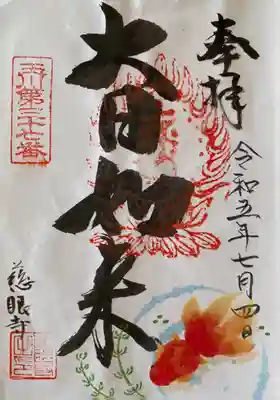 奉拝
令和五年七月四日
大日如来
玉川第三十七番
慈眼寺